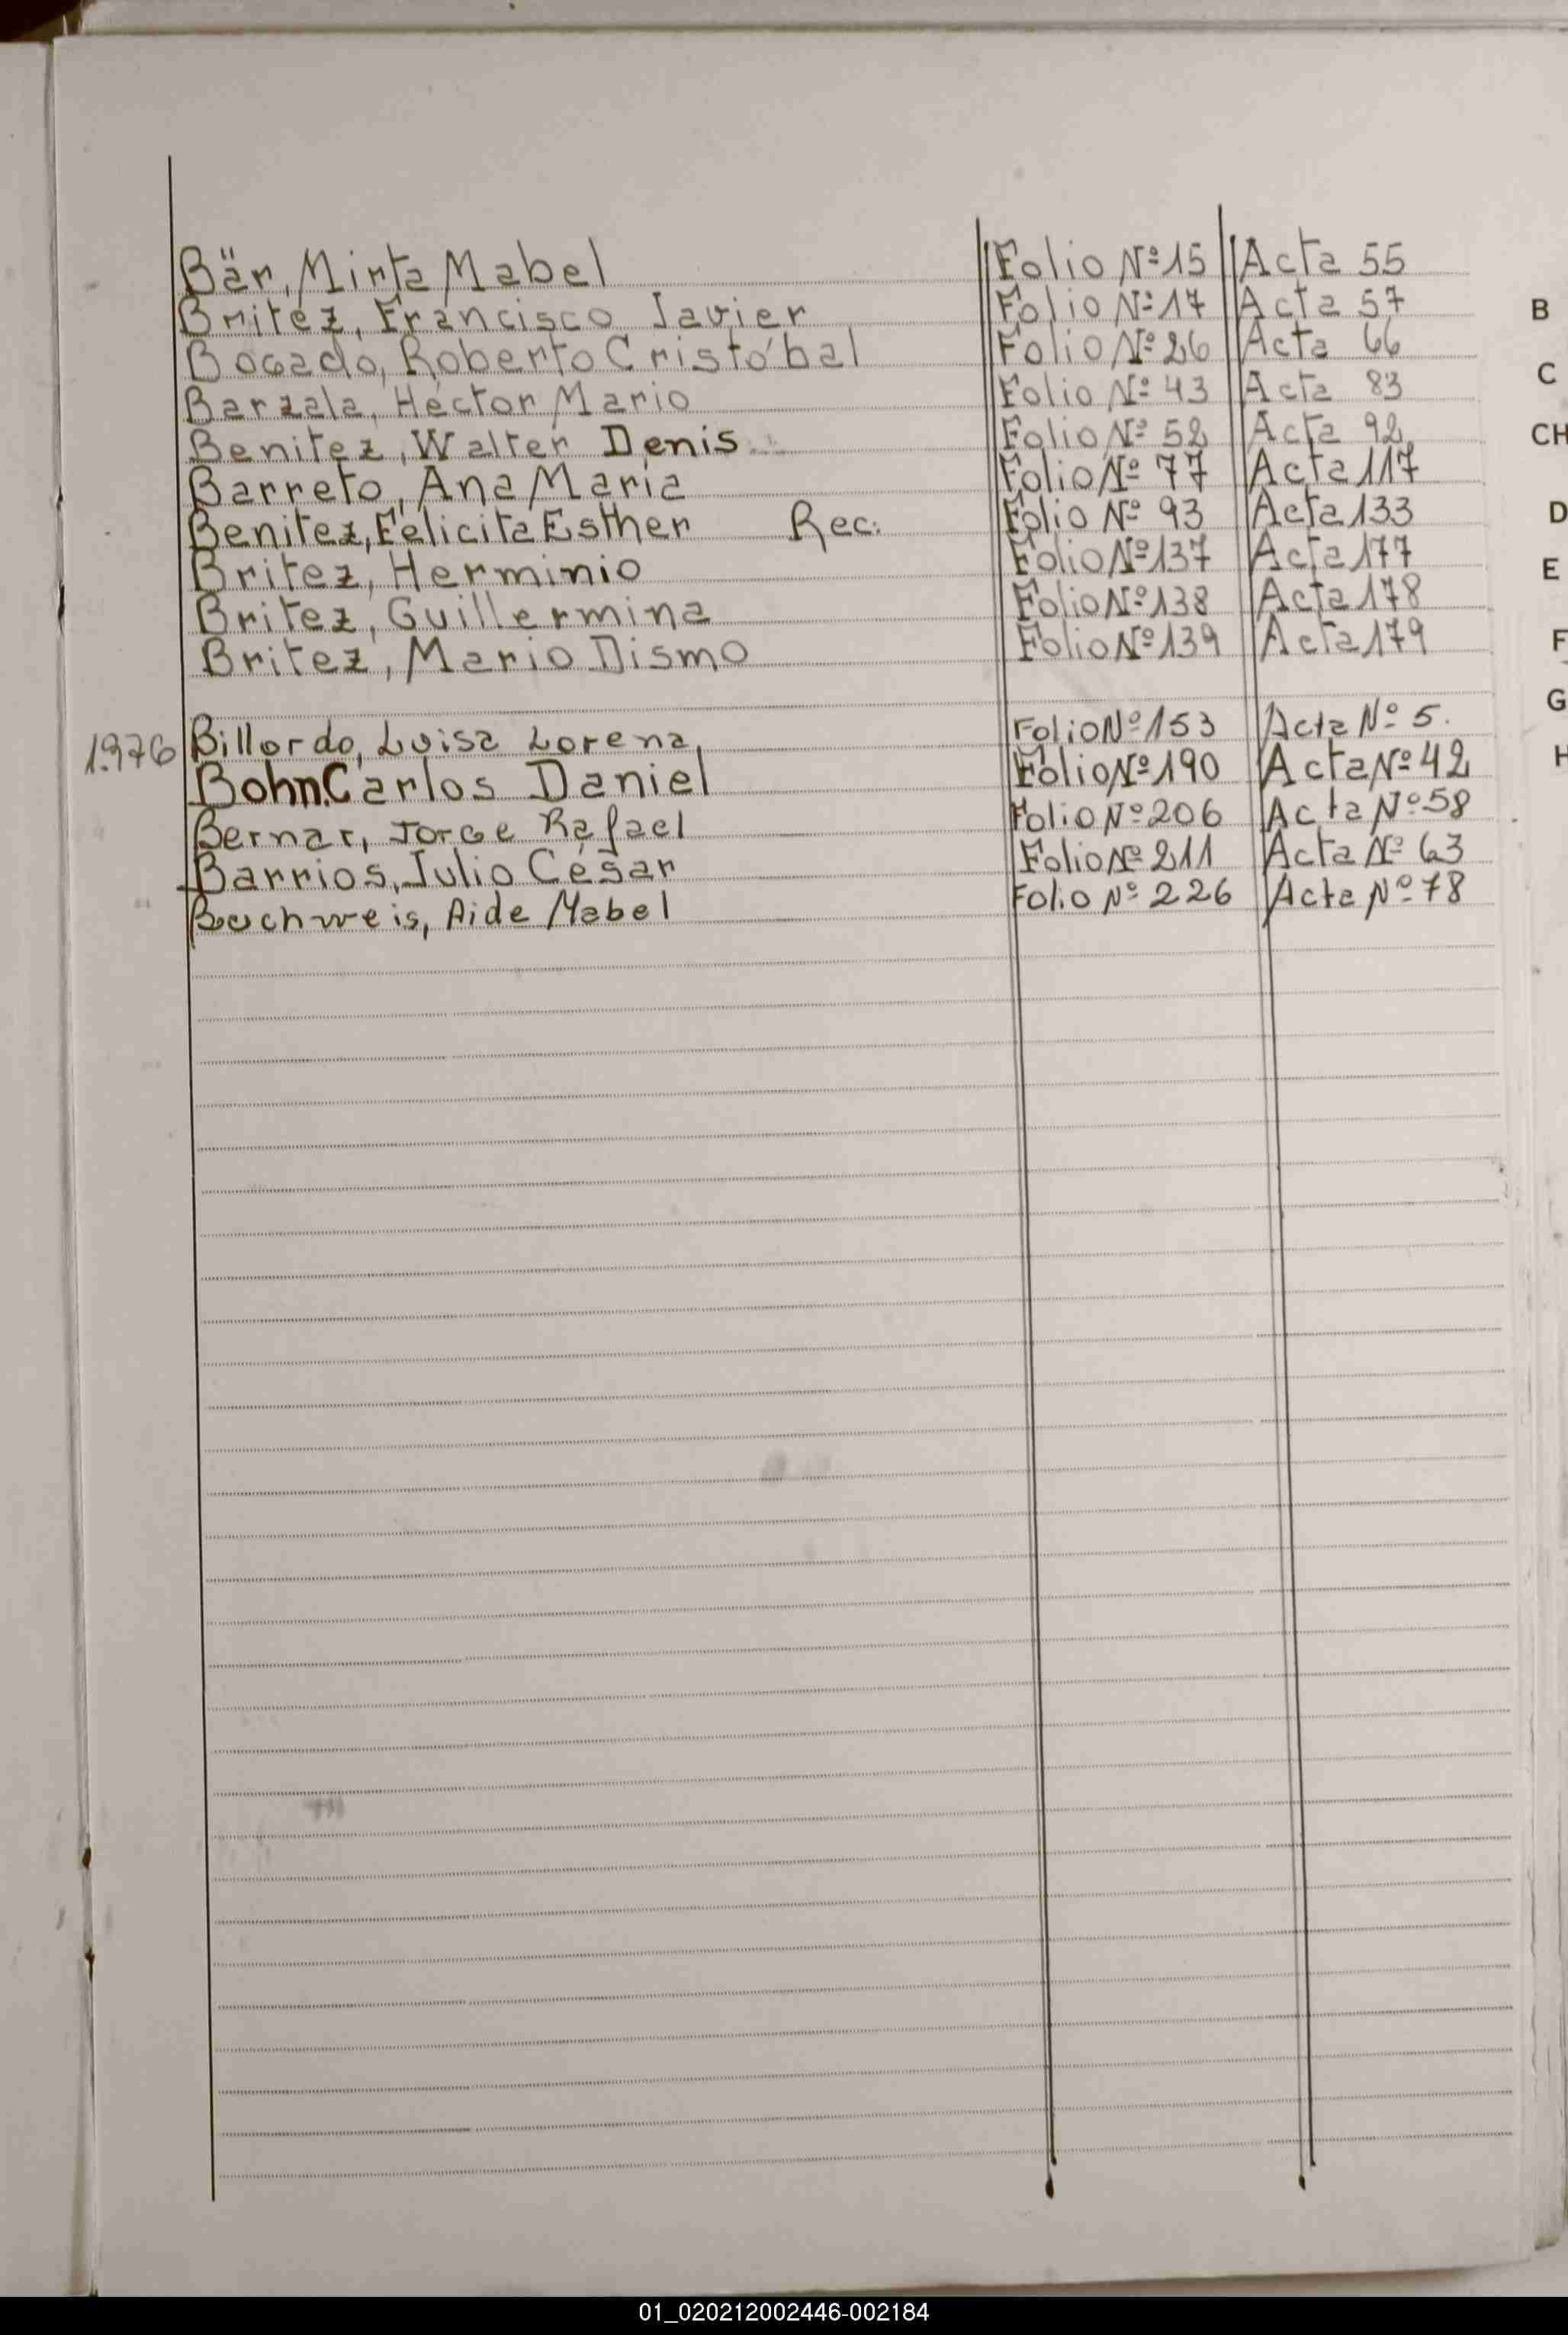 Bär, Mirta Mabel Folio Nº 15 Acta 55
Britez, Francisco Javier Folio Nº 17 Acta 57
B
Bogado, Roberto Cristóbal Folio Nº 26 Acta 66
C
Barzala, Héctor Mario Folio Nº 43 Acta 83
Benitez, Walter Denis Folio Nº 52 Acta 92
CH
Barreto, Ana María Folio Nº 77 Acta 117
Benitez, Felicita Esther Rec. Folio Nº 93 Acta 133
D
Britez, Herminio Folio Nº 137 Acta 177
E
Britez, Guillermina Folio Nº 138 Acta 178
Britez, Mario Dismo Folio Nº 139 Acta 179
F
G
1.976 Billordo, Luisa Lorena, Folio Nº 153 Acta Nº 5.
H
Bohn, Carlos Daniel Folio Nº 190 Acta Nº 42
Bernar, Jorge Rafael Folio Nº 206 Acta Nº 58
Barrios, Julio César Folio Nº 211 Acta Nº 63
Buchweis, Aide Mabel Folio Nº 226 Acta Nº 78
01_020212002446-002184